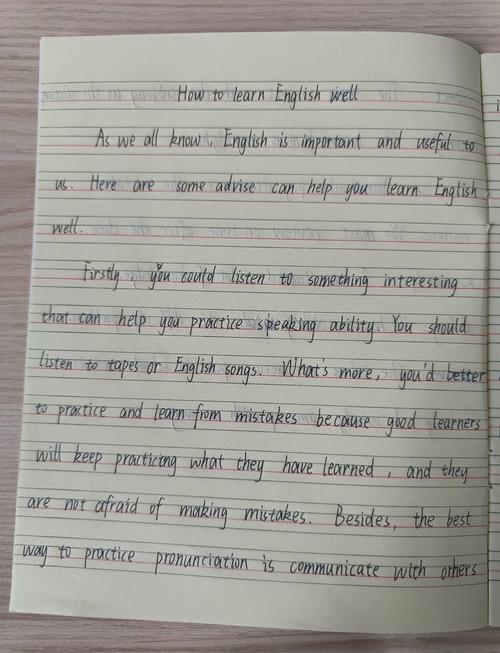 How to learn English well
As we all know English is important and useful to
us. Here are some advise can help you learn English
well.
Firstly you could listen to something interesting
that can help you practice speaking ability. You should
listen to tapes or English songs. What's more, you'd better
to practice and learn from mistakes because good learners
will keep practicing what they have learned, and they
are not afraid of making mistakes. Besides, the best
way to practice pronunciation is communicate with others